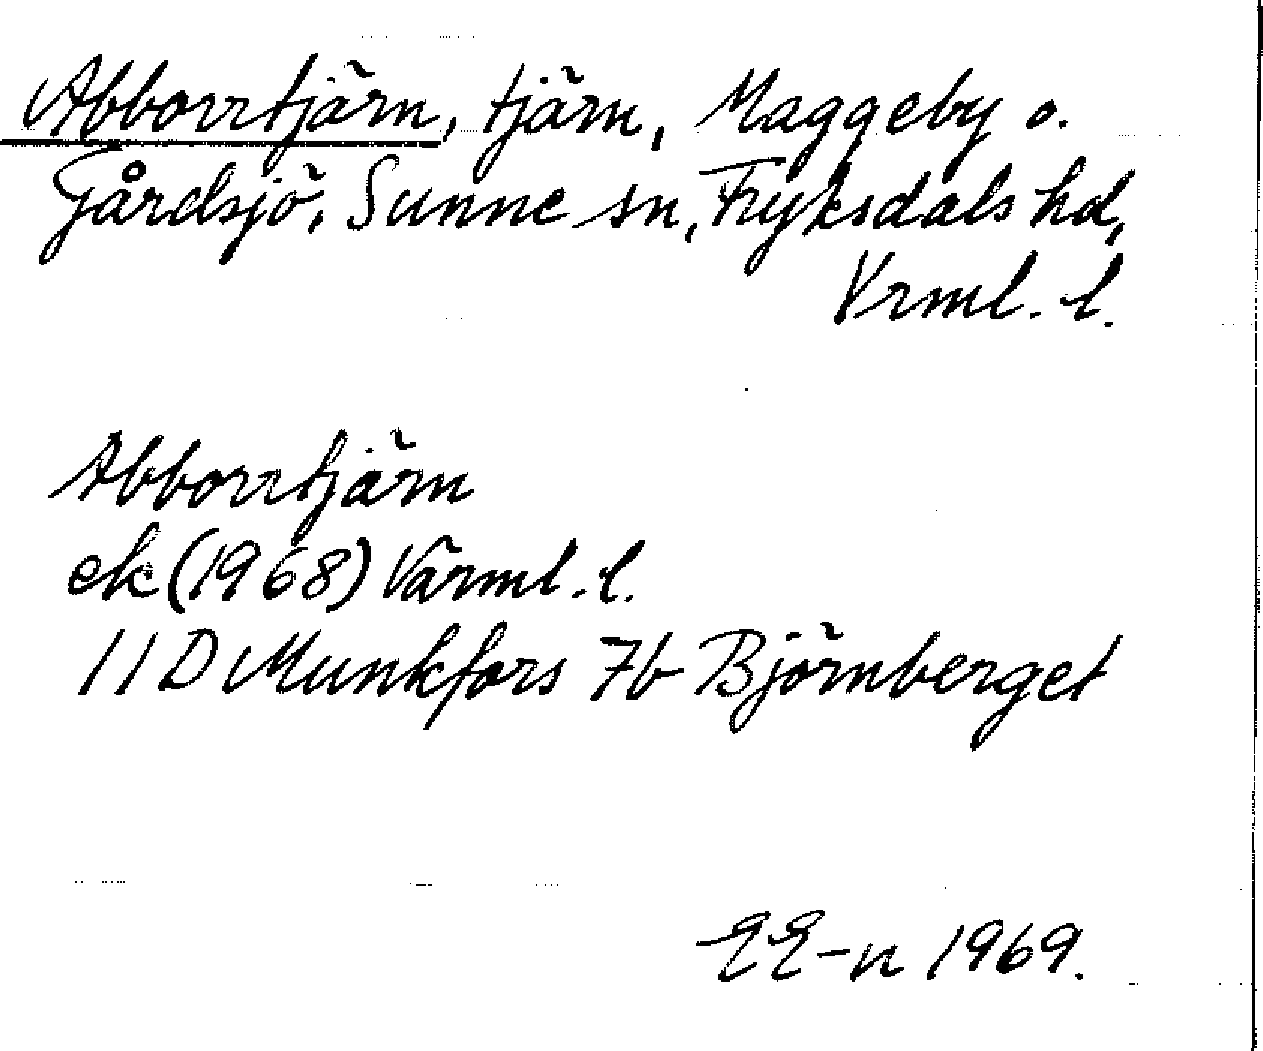 Abborrtjärn, tjärn, Maggeby o.
Gårdsjö, Sunne sn, Fryksdals hd,
Vrml. l.
Abborrtjärn
ek (1968) Värml. l.
11D Munkfors 7b Björnberget
EE-n 1969.